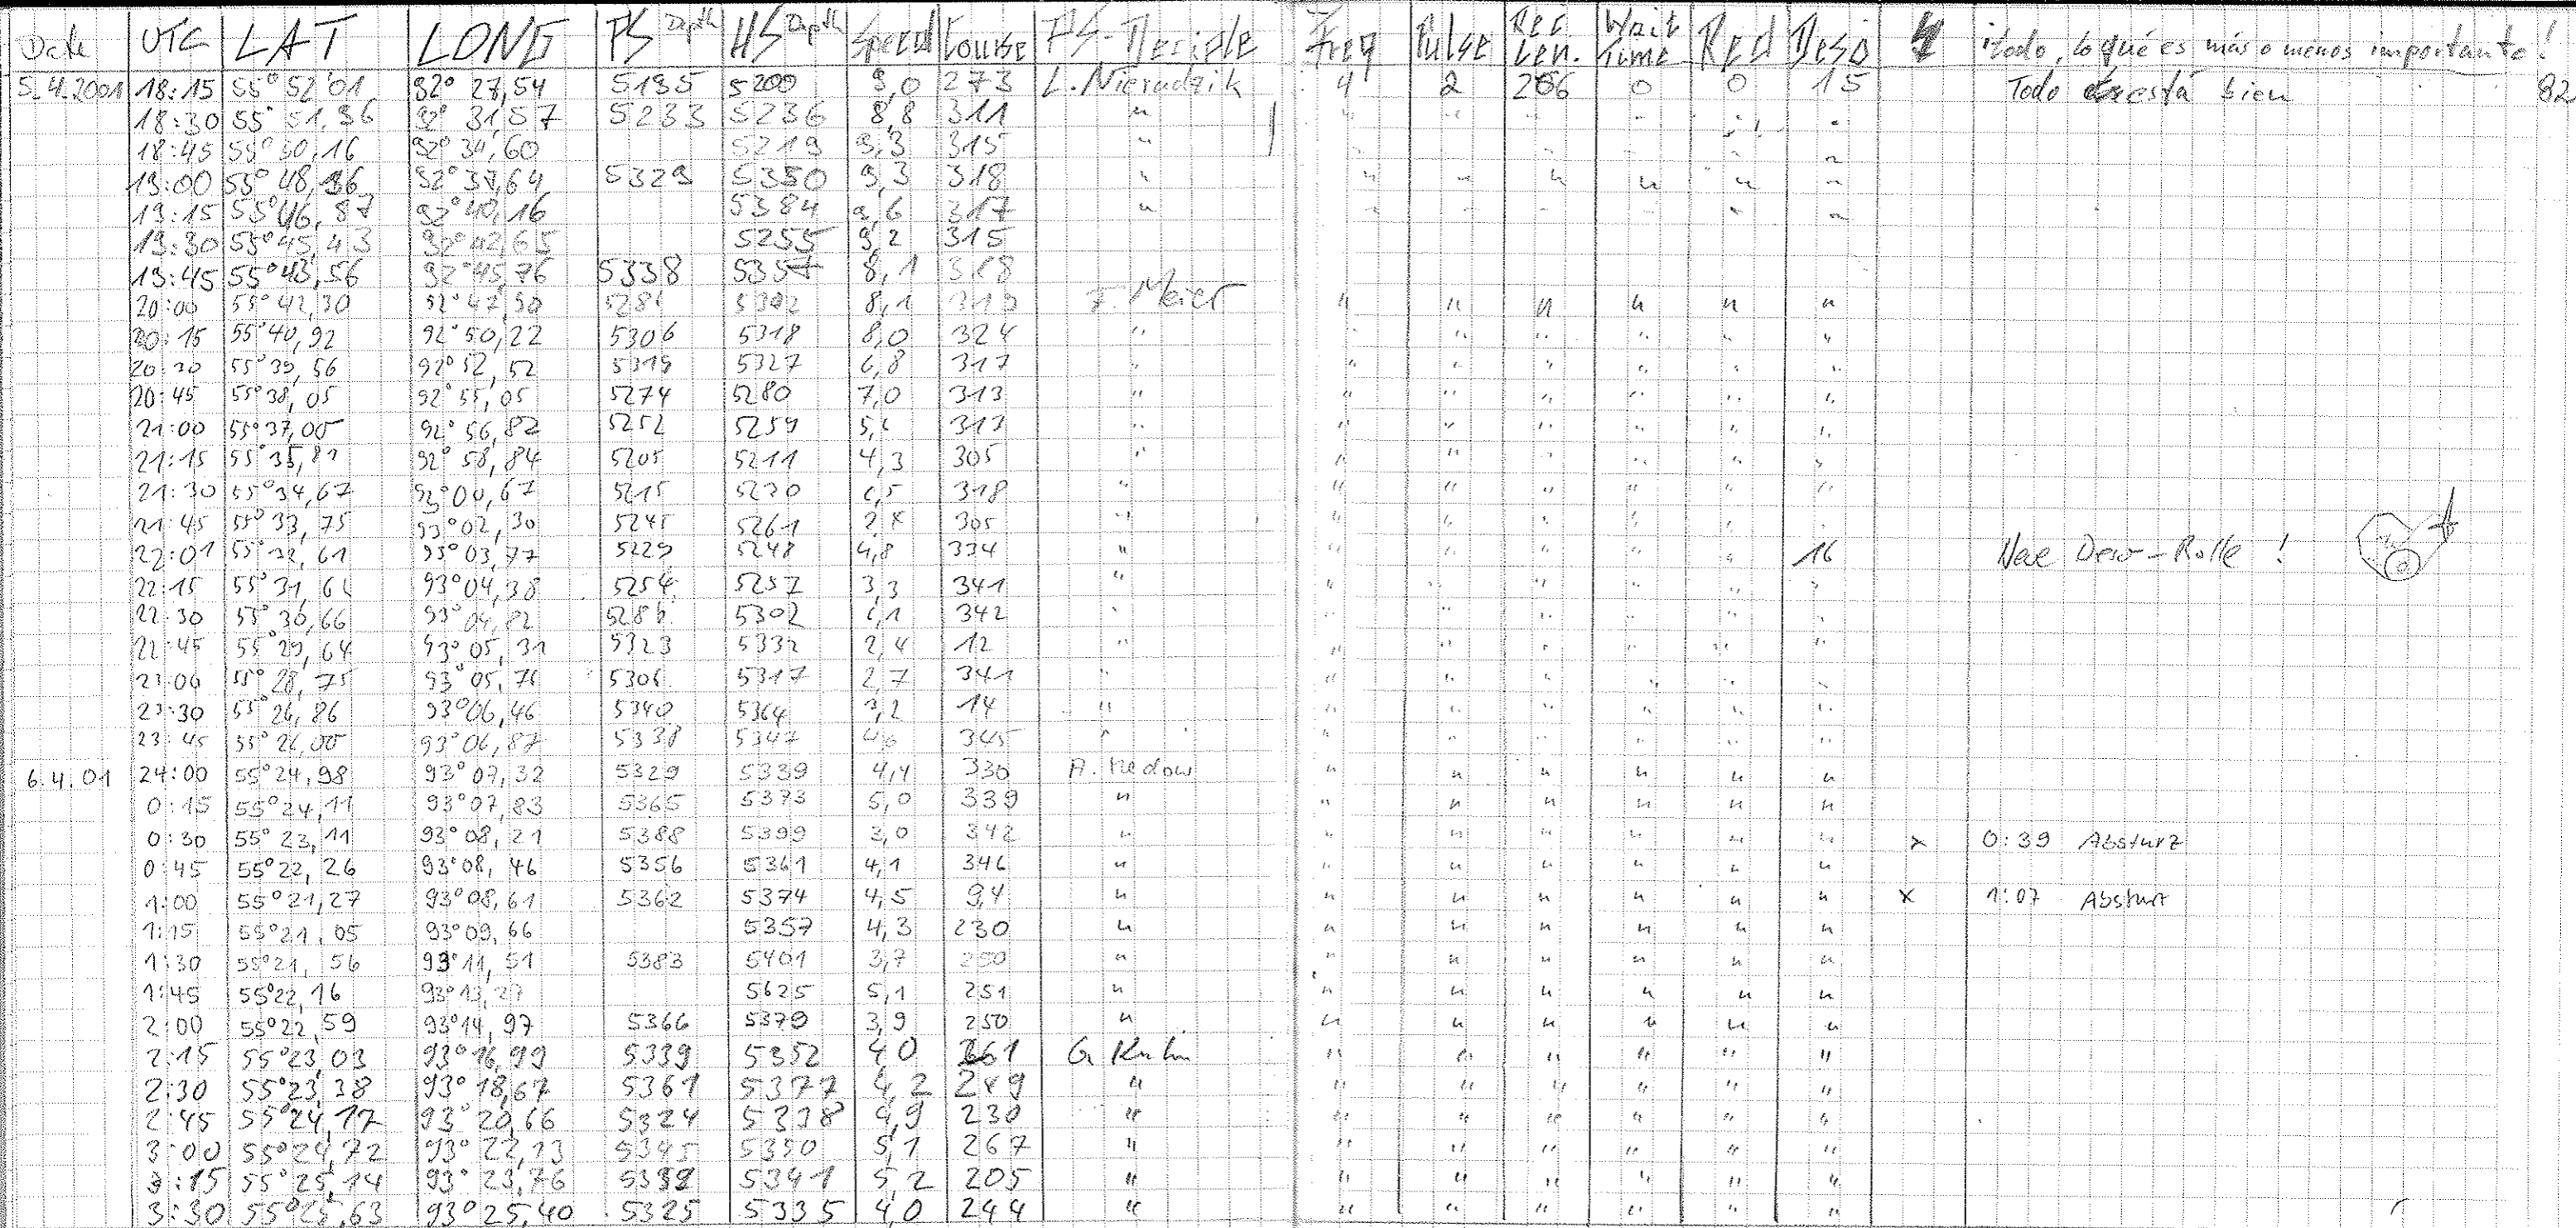 Date UTC LAT LONG PS Depth HS Depth Speed Course PS- Freq Pulse Rec. Len. Wait Time Red Deso ¡todo, lo qué es más o menos importante!
5.4.2001 18:15 55° 52'01 92° 27,54 5195 5200 9,0 273 L. Nieradzik 4 2 266 0 0 15 Todo está bien 82
18:30 55° 51,36 92° 31,57 5233 5236 8,8 311 " " " " " " "
18:45 55° 50,16 92° 34,60 5219 9,3 315 " " " " " " "
19:00 55° 48,36 92° 37,64 5329 5350 9,3 318 " " " " " " "
19:15 55° 46,87 92° 40,16 5384 9,6 317 " " " " " " "
19:30 55° 45,43 92° 42,65 5255 9,2 315
19:45 55° 43,56 92° 45,76 5338 5357 8,1 318
20:00 55° 42,30 92° 47,90 5286 5302 8,1 319 F. Meier " " " " " "
20:15 55° 40,92 92° 50,22 5306 5318 8,0 324 " " " " " " "
20:30 55° 39,56 92° 52,52 5319 5327 6,8 317 " " " " " " "
20:45 55° 38,05 92° 55,05 5274 5280 7,0 313 " " " " " " "
21:00 55° 37,05 92° 56,82 5252 5259 313 " " " " " " "
21:15 55° 35,81 92° 58,84 5205 5211 4,3 305 " " " " " " "
21:30 55° 34,67 93° 00,67 5215 5230 318 " " " " " " "
21:45 55° 33,75 93° 02,30 5245 5261 305 " " " " " " "
22:01 55° 32,61 93° 03,77 5229 5248 4,8 334 " " " " " " 16 Neue Deso-Rolle !
22:15 55° 31,66 93° 04,38 5254 5257 3,3 341 " " " " " " "
22:30 55° 30,66 93° 04,82 5286 5302 342 " " " " " " "
22:45 55° 29,64 93° 05,31 5323 5332 2,4 12 " " " " " " "
23:00 55° 28,75 93° 05,76 5306 5317 2,7 341 " " " " " " "
23:30 55° 26,86 93° 06,46 5340 5364 3,2 14 " " " " " " "
23:45 55° 26,00 93° 06,87 5338 5347 4,6 345 " " " " " " "
6.4.01 24:00 55° 24,98 93° 07,32 5329 5339 4,4 330 A. Nedow " " " " " "
0:15 55° 24,11 93° 07,83 5365 5373 5,0 339 " " " " " " "
0:30 55° 23,11 93° 08,21 5388 5399 3,0 342 " " " " " " " x 0:39 Absturz
0:45 55° 22,26 93° 08,46 5356 5361 4,1 346 " " " " " " "
1:00 55° 21,27 93° 08,61 5362 5374 4,5 9,4 " " " " " " " x 1:07 Absturz
1:15 55° 21,05 93° 09,66 5357 4,3 230 " " " " " " "
1:30 55° 21,56 93° 11,51 5383 5401 3,7 250 " " " " " " "
1:45 55° 22,16 93° 13,27 5625 5,1 251 " " " " " " "
2:00 55° 22,59 93° 14,97 5366 5379 3,9 250 " " " " " " "
2:15 55° 23,03 93° 16,99 5339 5352 4,0 261 G. Kuhn " " " " " "
2:30 55° 23,38 93° 18,67 5361 5377 4,2 " " " " " " "
2:45 55° 24,17 93° 20,66 5324 5338 4,9 230 " " " " " " "
3:00 55° 24,72 93° 22,13 5345 5350 5,1 267 " " " " " " "
3:15 55° 25,14 93° 23,76 5332 5341 5,2 205 " " " " " " "
3:30 55° 25,63 93° 25,40 5325 5335 4,0 244 " " " " " " "